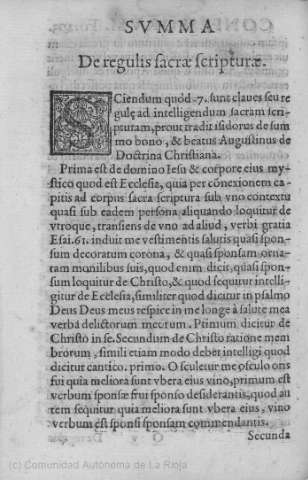 SVMMA
De regulis sacræ scripturæ.
SCiendum quòd .7. sunt claues seu re
gulę ad intelligendum sacram scri-
pturam, prout tradit isidorus de sum
mo bono, & beatus Augustinus de
Doctrina Christiana.
Prima est de domino Iesu & corpore eius my-
stico quod est Ecclesia, quia per cōnexionem ca-
pitis ad corpus sacra scriptura sub vno contextu
quasi sub eadem persona aliquando loquitur de
vtroque, transiens de vno ad aliud, verbi gratia
Esai. 61. induit me vestimentis salutis quasi spon-
sum decoratum corona, & quasi sponsam ornam
tam monilibus suis, quod enim dicit, quasi spon-
sum loquitur de Christo, & quod sequitur intelli-
gitur de Ecclesia, similiter quod dicitur in psalmo
Deus Deus meus respice in me longè à salute mea
verba delictorum meorum. Primum dicitur de
Christo in se. Secundum de Christo ratione mem
brorum, simili etiam modo debet intelligi quod
dicitur cantico. primo. Osculetur me osculo oris
sui quia meliora sunt vbera eius vino, primum est
verbum sponsæ frui sponso desiderantis, quod au
tem sequitur quia meliora sunt vbera eius, vino
verbum est sponsi sponsam commendantis.
Q v Secunda
(c) Comunidad Autónoma de La Rioja